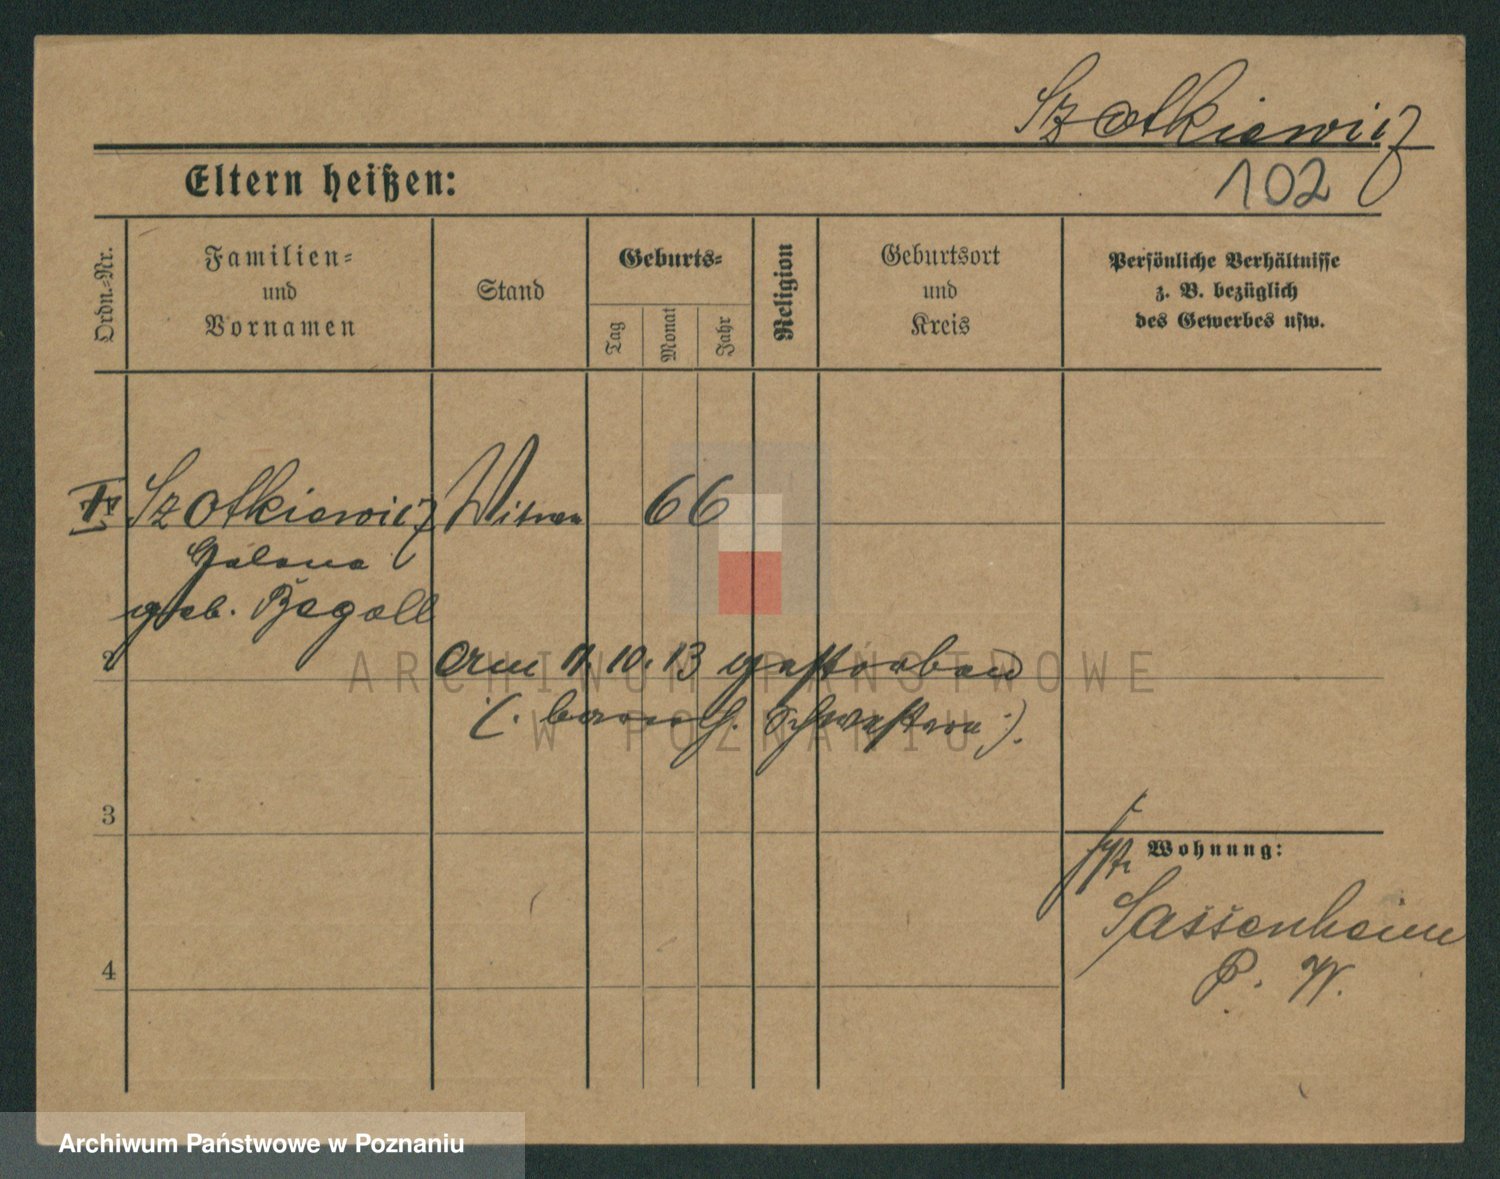 Szotkiewicz
102
Eltern heißen:
Ordn.-Nr.
Familien-
und
Vornamen
Stand
Geburts-
Tag
Monat
Jahr
Religion
Geburtsort
und
Kreis
Persönliche Verhältnisse
z. B. bezüglich
des Gewerbes usw.
Szotkiewicz Witwe 66
Helena
geb.
2
am 11. 10. 13 gestorben
(. barmh. Schwestern .).
3
Wohnung:
Sassenheim
P. W.
4
ARCHIWUM PAŃSTWOWE
W POZNANIU
Archiwum Państwowe w Poznaniu